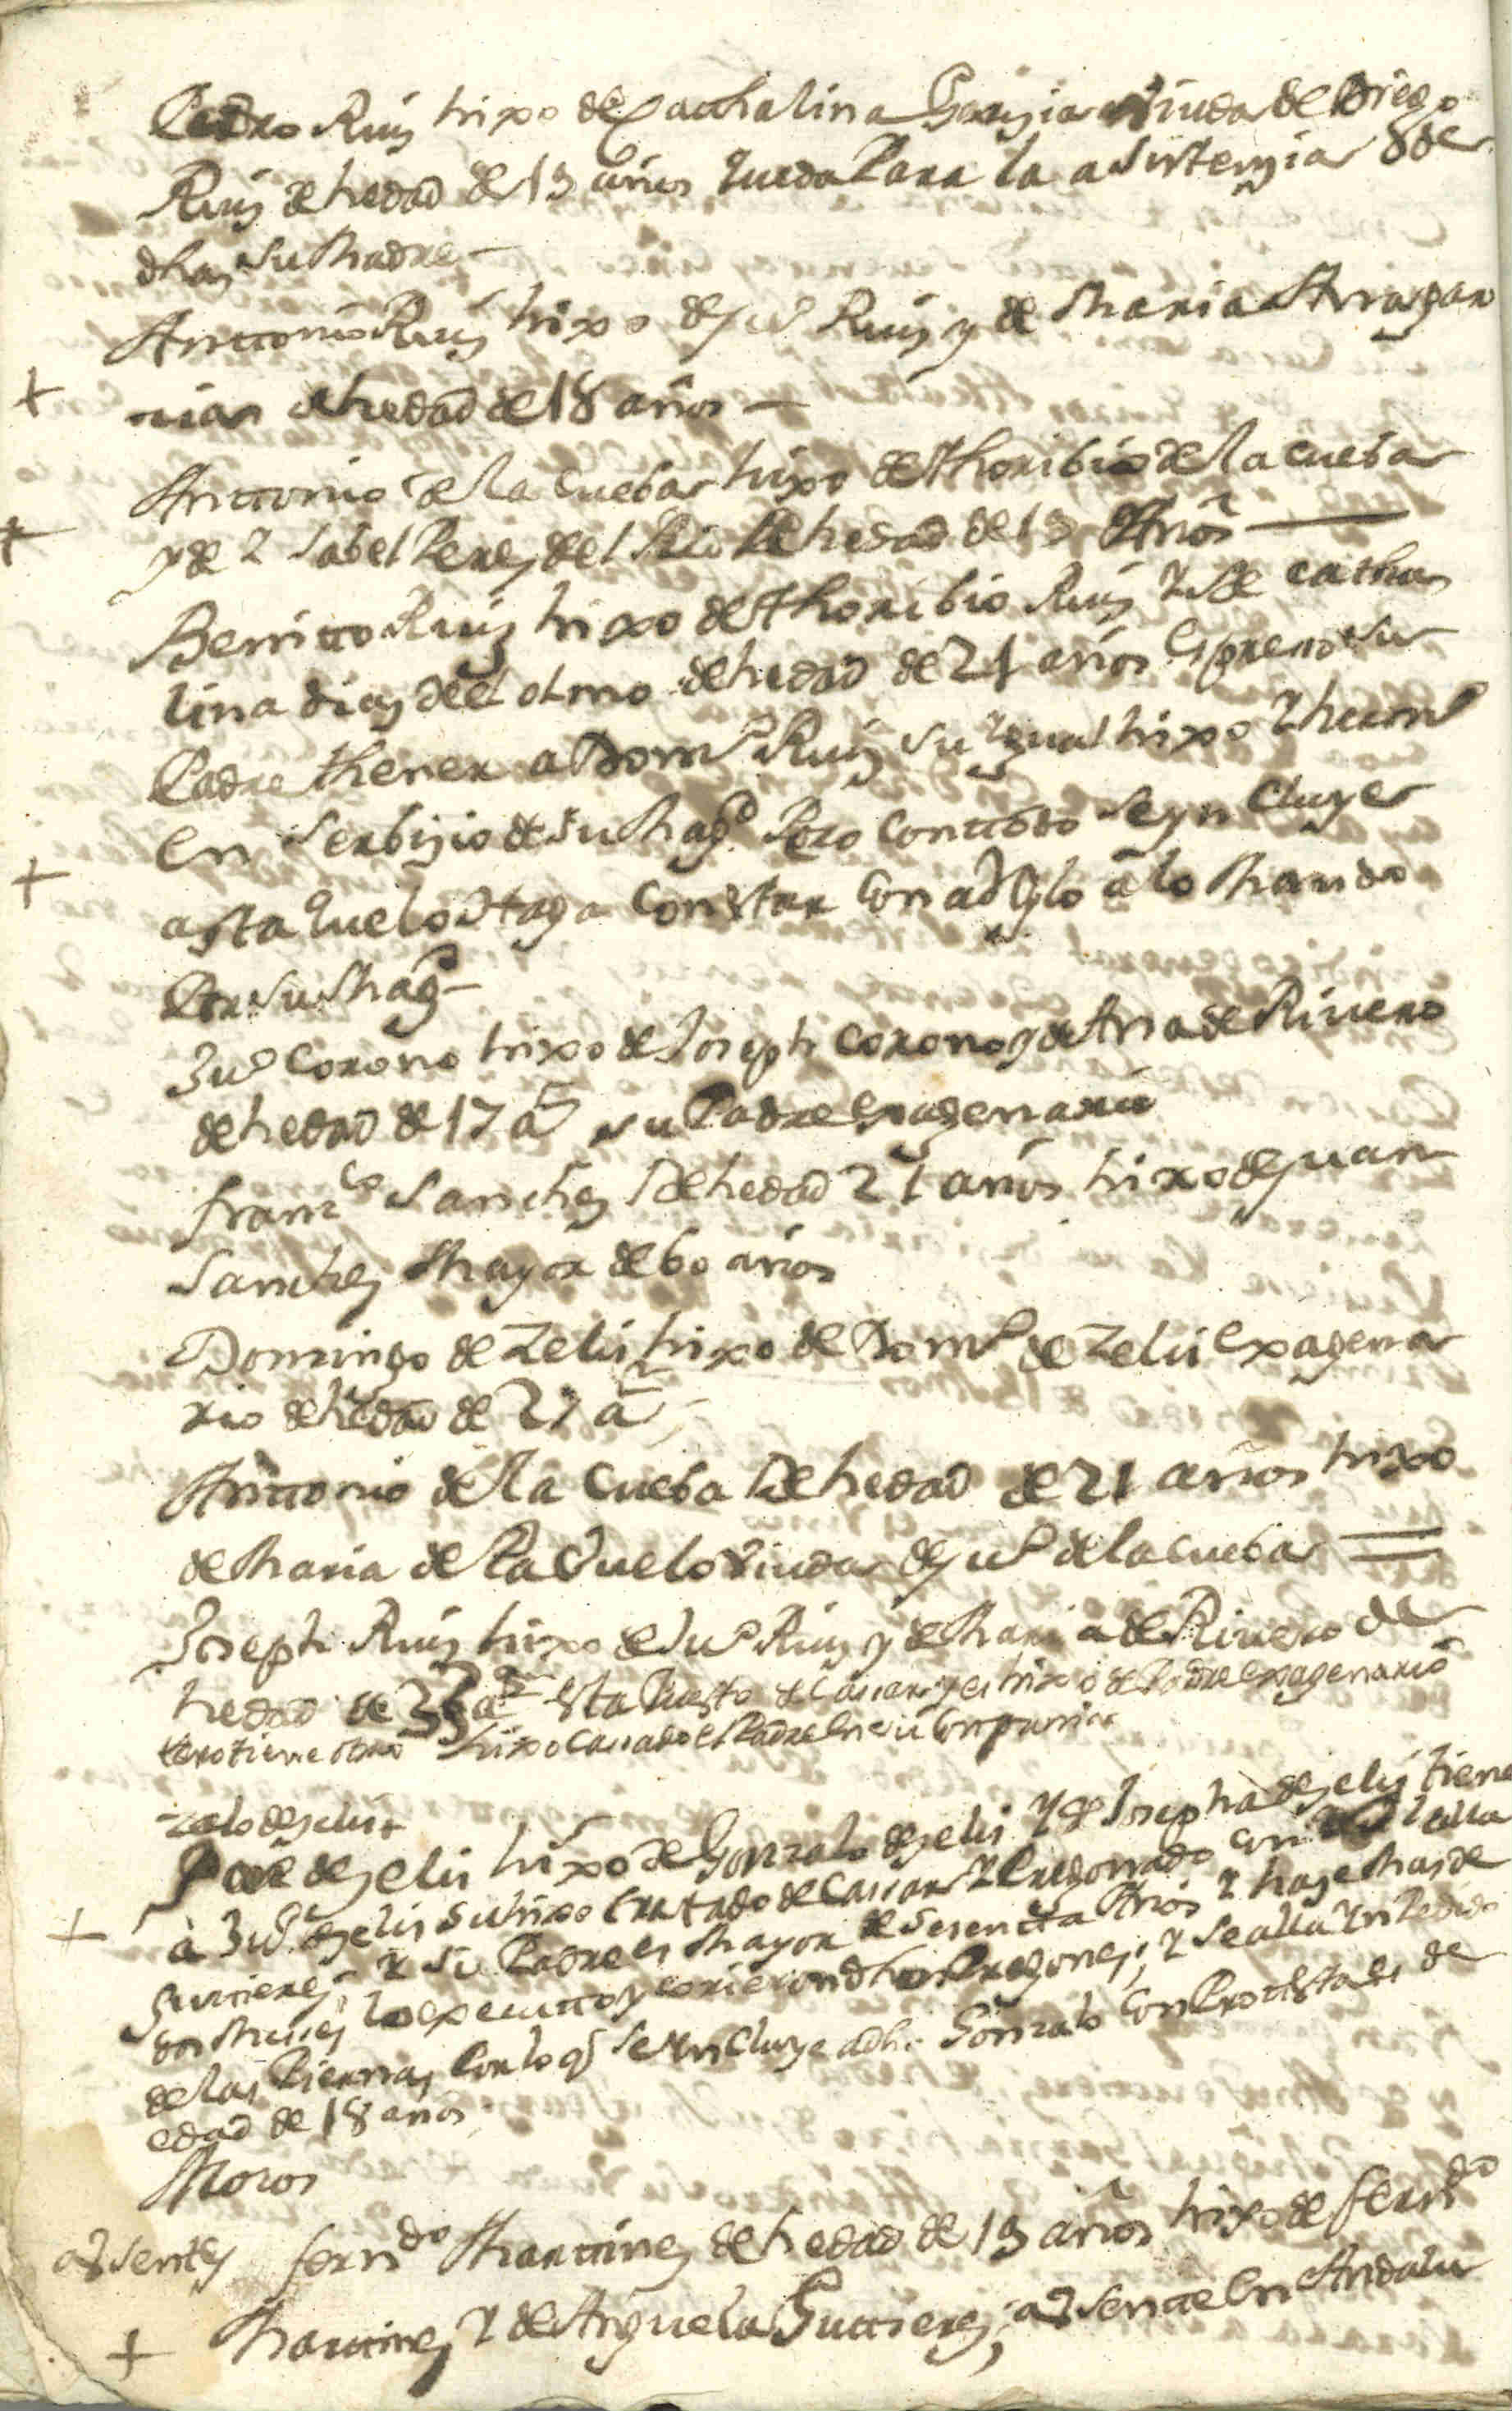 Pedro Ruiz hixo de Cathalina Garzia viuda de Diego
Ruiz de hedad de 19 años queda Para la asistenzia de
dha su Madre —
Anttonio Ruiz hixo de Juº Ruiz y de Maria Arragon
+ de hedad de 18 años —
Anttonio de la Cueba hixo de Thoribio de la Cueba
+ y de Ysabel Perez del Rio de hedad de 19 Años —
Benitto Ruiz hixo de Thoribio Ruiz y de Catha
lina diaz del olmo de hedad de 21 años espreso su
Padre thener a Domº Ruiz su hixo
en serbizio de su Magd. Pero con ttodo se yncluye
+ asta que lo haga constar con a lo Mando
Por su Magd —
Juº Corono hixo de Joseph Corono y de Ana de Rivero
de hedad de 17 as su Padre exsagenario
Franco Sanchez de hedad 21 años hixo de Juan
Sanchez Mayor de 60 años
Domingo de Zelis hixo de Domº de Zelis exagena
rio de hedad de 21 as
Anttonio de la Cueba de hedad de 21 años hixo
de Maria de viuda de Juº de la Cueba =
Joseph Ruiz hixo de Juº Ruiz y de Maria de Rivero de
hedad de 33 as esta Puesto de Casar y es hixo de Padre exsagenario
Pero tiene otro hixo casado el Padre en su Conpania
zalo de zelis
de zelis hixo de Gonzalo de zelis y de Josepha de zelis tiene
+ a Juº de zelis su hixo tratado de Casar y Pregonado con
Guttierez, y su Padre es Mayor de Sesentta Años y haze Mas de
dos Meses lo executto y corrieron dhos Pregones, y se alla ynpedido
de las Piernas Por lo q se yncluye a dho Gonzalo con Protesta de
edad de 18 años
Mozos
aussentes Ferndo Marttinez de hedad de 19 años hixo de Ferndo
+ Marttinez y de Anguela Guttierez, aussentte en Andalu